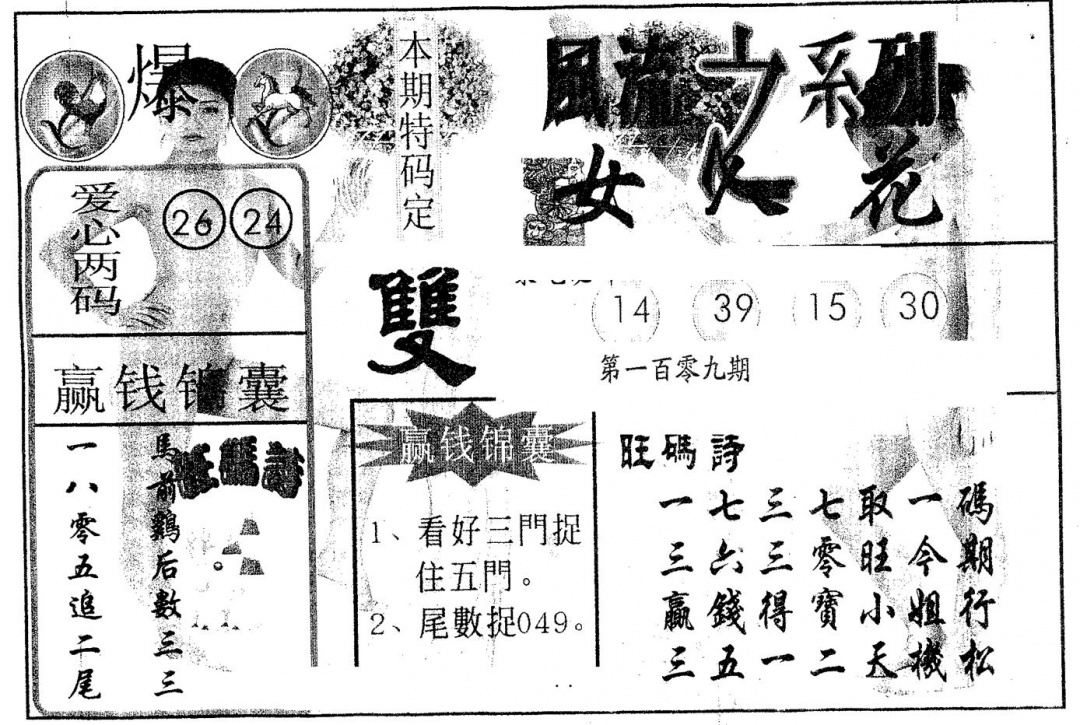 爆
本期特码定
雙
風流女系列
火
花
爱心两码
26 24
赢钱锦囊
馬前鷄后數三三
一八零五追二尾
14 39 15 30
第一百零九期
赢钱锦囊
1、看好三門捉
住五門。
2、尾數捉049。
旺碼詩
碼期行松
一今姐機
取旺小天
七零寶二
三三得一
七六錢五
一三贏三